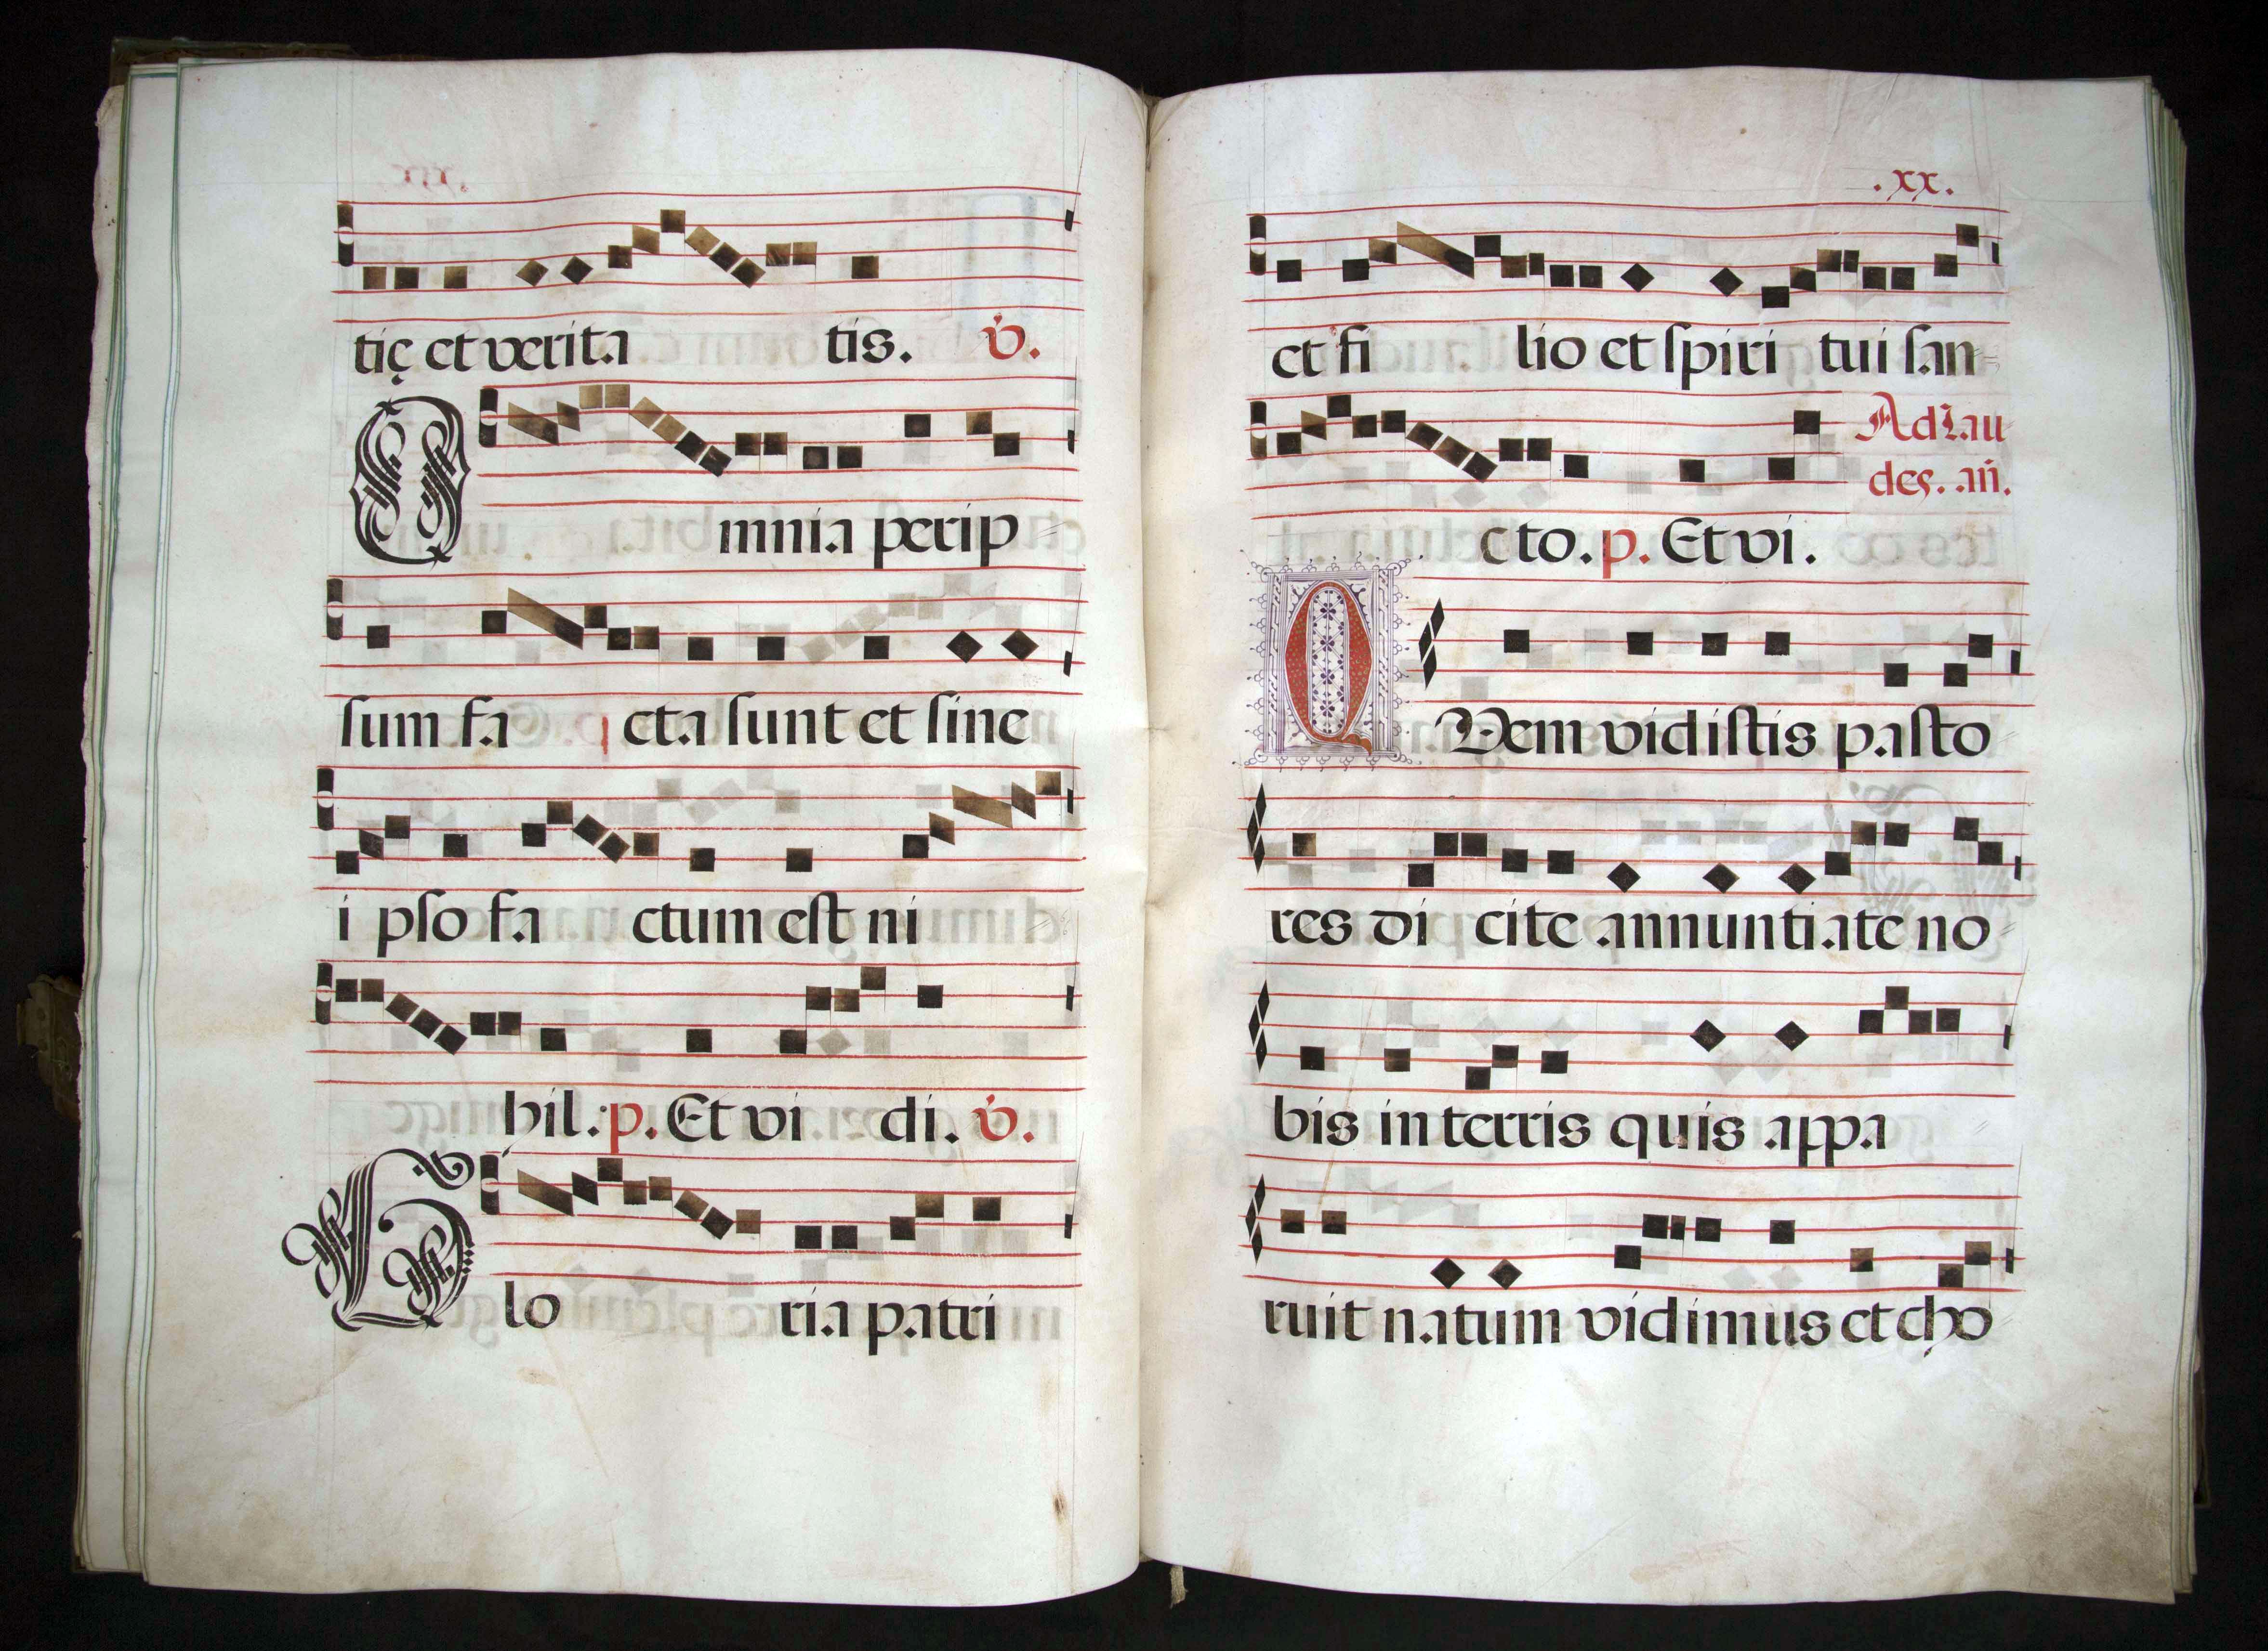 tię et verita tis. v̇.
Omnia per ip
sum fa cta sunt et sine
i pso fa ctum est ni
hil: p. Et vi di. v̇.
Glo ria patri
.xx.
et fi lio et spiri tui san-
Ad Lau
des. an̄.
cto. p. Et vi.
QVem vidistis pasto
res di cite annuntiate no
bis in terris quis appa
ruit natum vidimus et cho